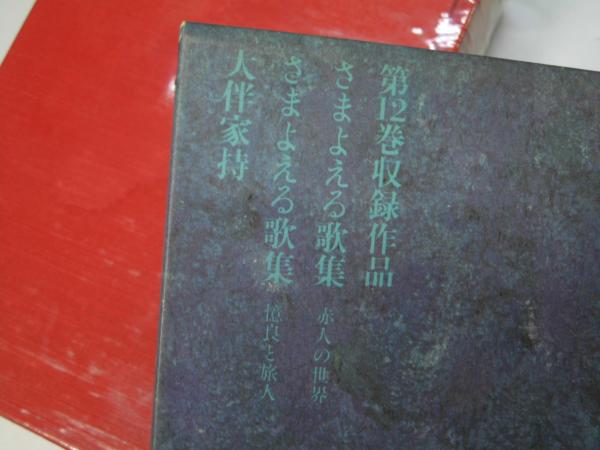 第12巻収録作品
さまよえる歌集 赤人の世界
さまよえる歌集 憶良と旅人
大伴家持